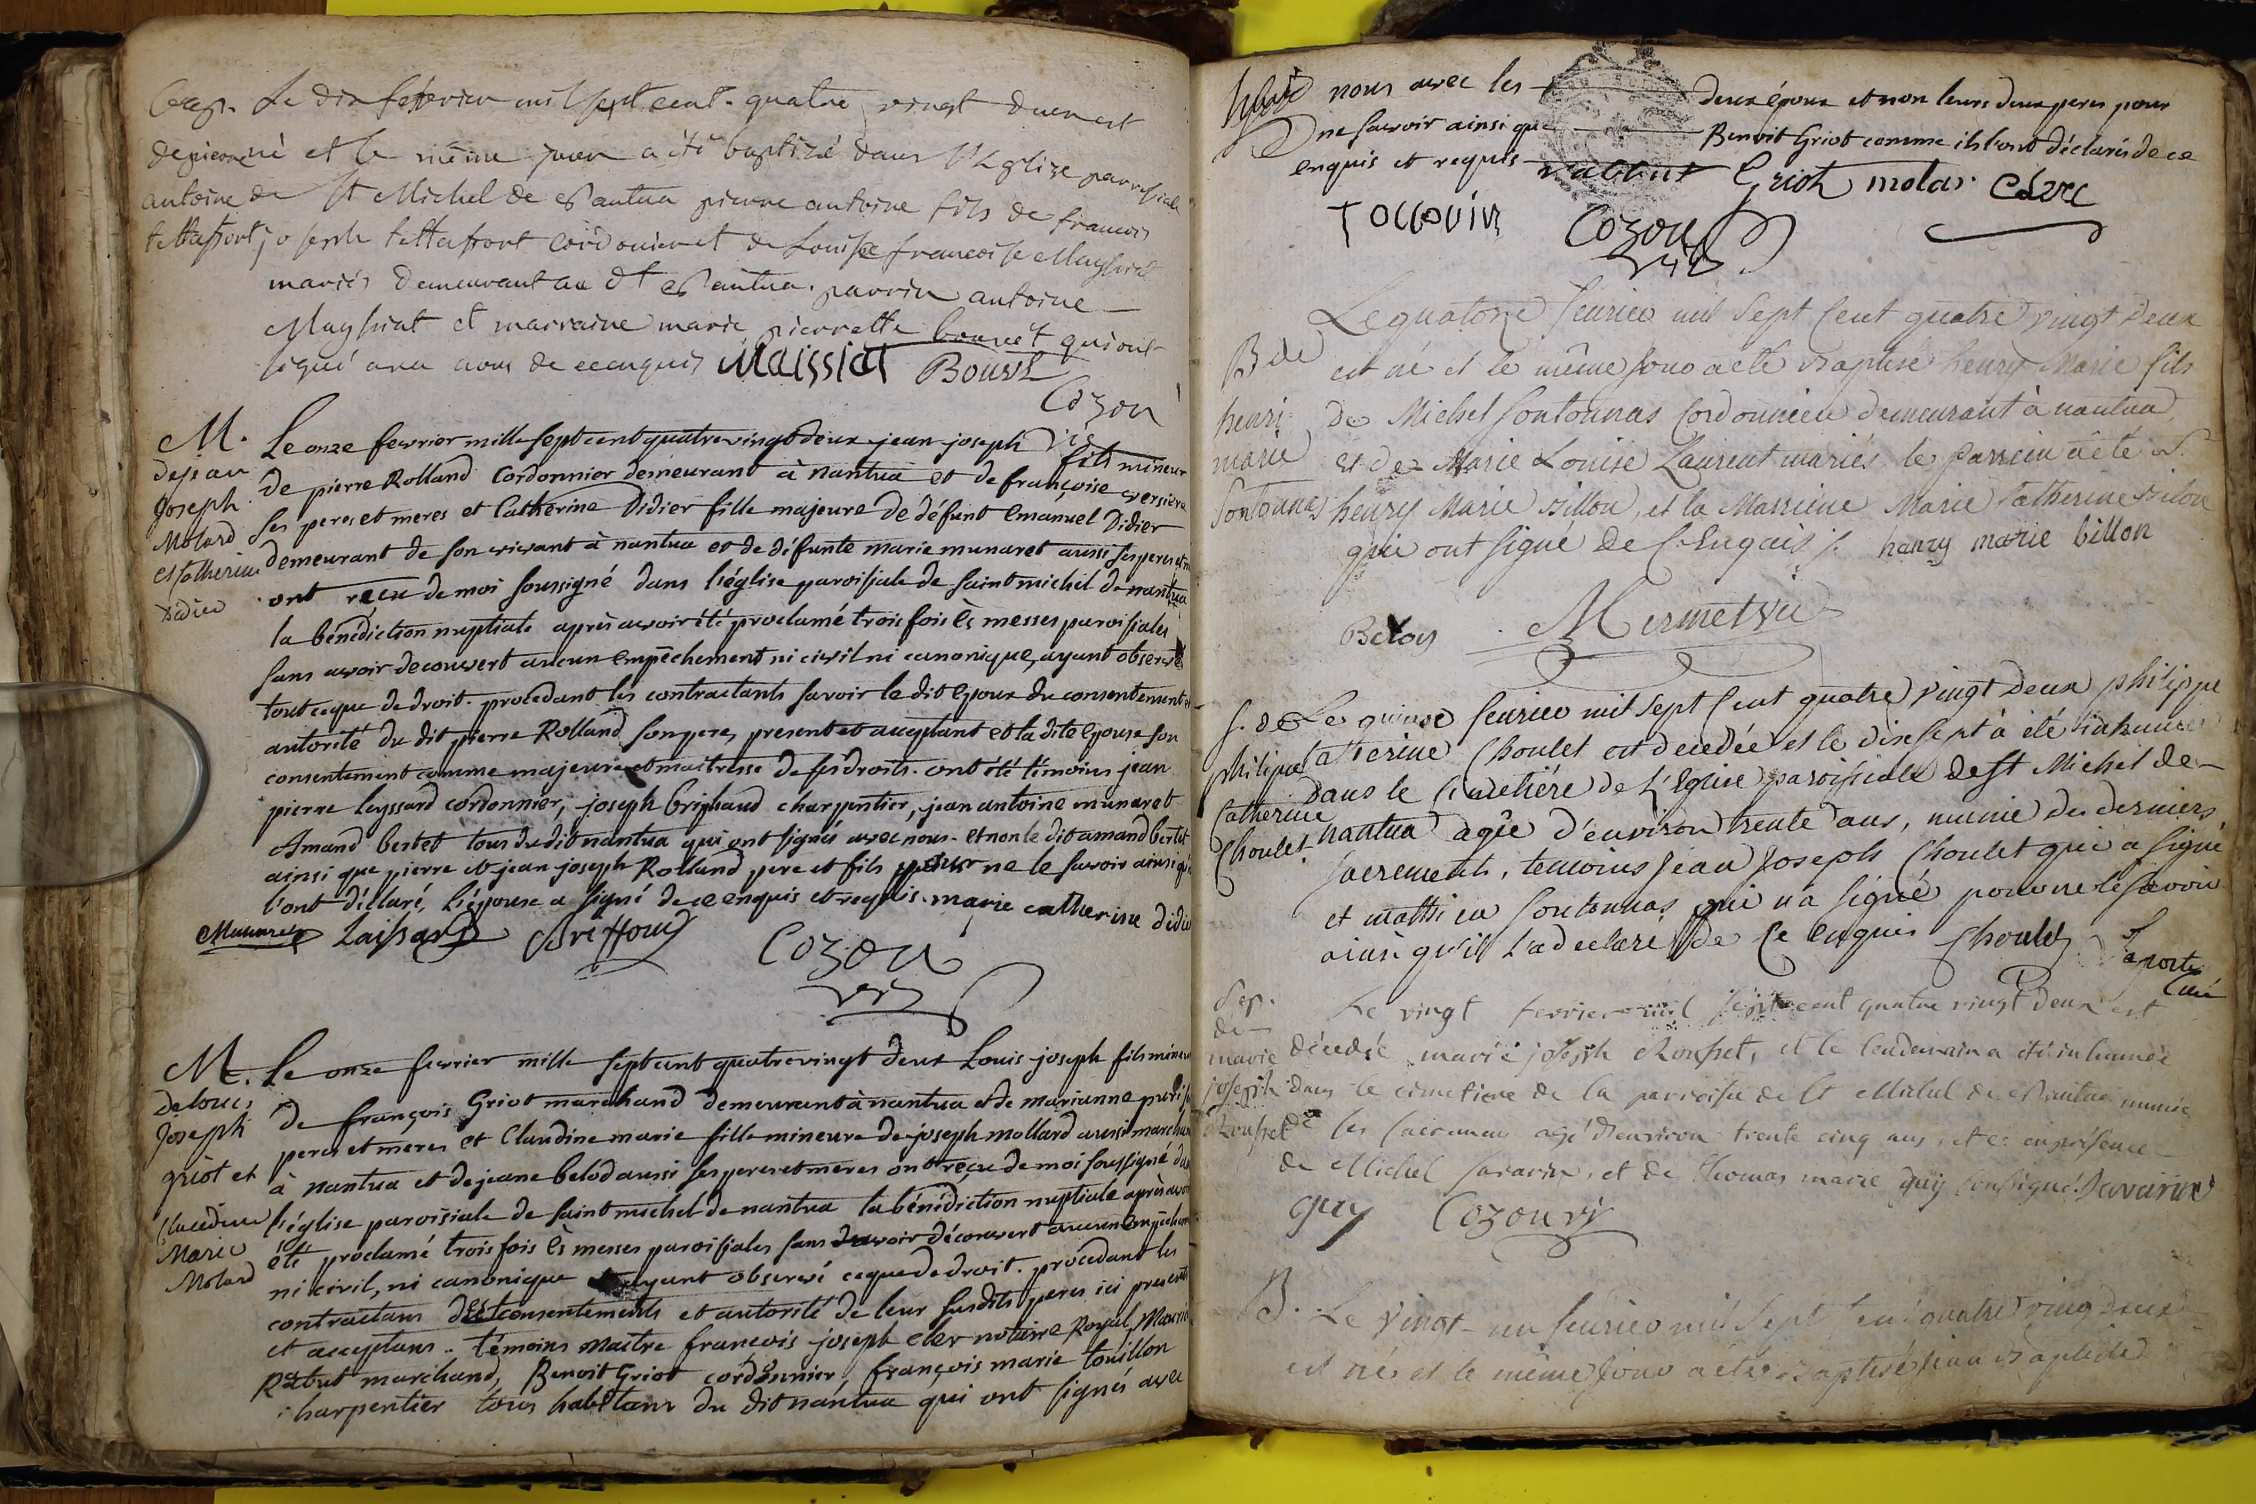 Le dix février mil sept cent quatre vingt deux est
né et le même jour a été baptizé dans l'Eglize parroissiale
de pierre
antoine
tettafort
de St Michel de Nantua pierre antoine fils de francois
joseph tettafort cordonier et de Louise francoise Mayssiat
mariés demeurant au dt Nantua. parrin antoine
Mayssiat et marraine marie pierrette bouvet qui ont
signé avec nous de ce enquis Maissiat Bouvet
Cozon
vic
M.
de jean
joseph
Molard
et Catherine
Didier
Le onze fevrier mille sept cent quatre vingt deux jean joseph fils mineur
de pierre Rolland cordonnier demeurant à nantua et de françoise
ses peres et meres et Catherine Didier fille majeure de défunt Emanuel Didier
demeurant de son vivant à nantua et de défunte marie munaret aussi ses peres et m
ont reçu de moi soussigné dans l'église paroissiale de saint michel de nantua
la bénédiction nuptiale après avoir été proclamé trois fois ès messes paroissiales
sans avoir decouvert aucun empêchement ni civil ni canonique, ayant observé
tout ce que de droit. procedant les contractants savoir le dit epoux du consentement et
autorité du dit pierre Rolland son pere, present et acceptant et la dite epouse son
consentement comme majeure et maitresse de ses droits. ont été témoins jean
pierre leyssard cordonnier, joseph Griphaud charpentier, jean antoine munaret
Amand bertet tous du dit nantua qui ont signés avec nous. et non le dit amand bertet
ainsi que pierre et jean joseph Rolland pere et fils pour ne le savoir ainsi qu'ils
l'ont déclaré, l'épouse a signé de ce enquis et requis. marie catherine didier
Munaret Laissard Griffoud
Cozon
vic
M.
de louis
joseph
griot et
Claudine
Marie
Molard
Le onze fevrier mille sept cent quatre vingt deux Louis joseph fils mineur
de françois Griot marchand demeurant à nantua et de marianne
peres et meres et Claudine marie fille mineure de joseph mollard aussi marchand
à nantua et de jeane belod aussi ses peres et meres ont reçu de moi soussigné dans
l'église paroisiale de saint michel de nantua la bénédiction nuptiale après avoir
été proclamé trois fois ès messes paroissiales sans avoir découvert aucun empêchem
ni civil, ni canonique ayant observé ce que de droit. procedant les
contractans des consentements et autorité de leur susdits peres ici presents
et acceptans. témoins maitre francois joseph clerc notaire Royal,
marchand, Benoit Griot cordonnier, françois marie touillon
charpentier tous habitans du dit nantua qui ont signés avec
nous avec les deux époux et non leurs deux peres pour
ne savoir ainsi que Benoit Griot comme ils l'ont déclarés de ce
enquis et requis Griot molar Clerc
Cozon
vic
B de
henri
marie
Sontonnas
Le quatorze fevrier mil sept cent quatre vingt deux
est né et le même jour a eté Baptisé henry Marie fils
de Michel Sontonnas Cordonnier demeurant à nantua
et de Marie Louise Laurent mariés le parrein a été Sr
henry Marie Billon, et la Marreine Marie Catherine Belon
qui ont signé de ce Enquis henry marie billon
Belon Mermet vic
S. de
philippe
Catherine
Choulet
Le quinze fevrier mil sept cent quatre vingt deux philippe
Catherine Choulet est decedée et le dix sept à été inhumée
dans le Cimetiére de l'Eglise paroissiale de St Michel de
nantua agée d'environ trente ans, munie des derniers
sacrements, temoins jean Joseph Choulet qui a signé
et mathieu Sontonnas qui n'a signé pour ne le sçavoir
ainsi qu'il l'a declaré de ce enquis Choulet
Laporte
Curé
Sep.
de
marie
joseph
Rousset
Le vingt fevrier mil sept cent quatre vingt deux est
décedée marie joseph Rousset, et le lendemain a été inhumée
dans le cimetiere de la parroisse de St Michel de Nantua munie
de ses sacremens agé d'environ trente cinq ans et ce en présence
de Michel savarin, et de thomas marie guy soussigné. Savarin
guy Cozon vic
B.
Le vingt un fevrier mil sept cent quatre vingt deux
est né et le même jour a été Baptisé jean Baptiste